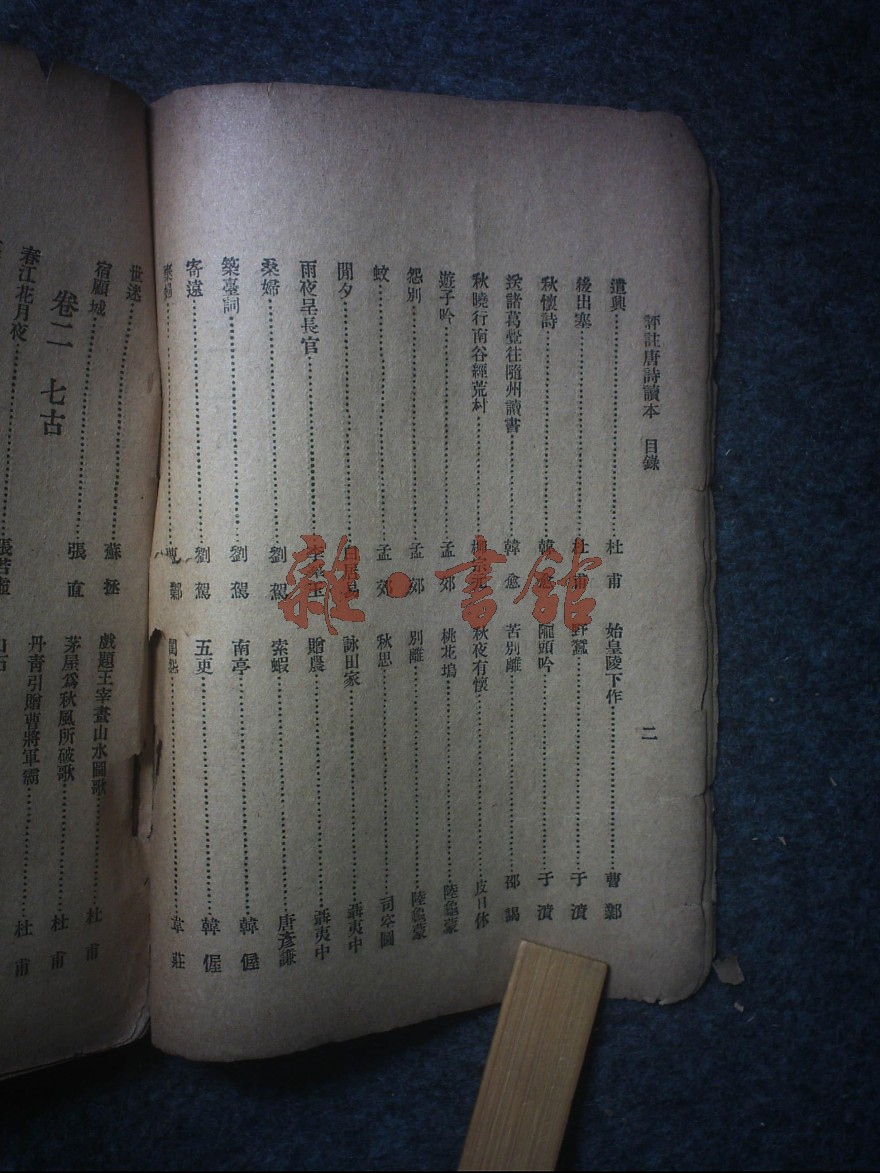 評註唐詩讀本　目錄　二
遣興……杜甫　始皇陵下作……曹鄴
後出塞……杜甫　野蠶……于濆
秋懷詩……韓愈　隴頭吟……于濆
送諸葛覺往隨州讀書……韓愈　苦別離……邵謁
秋曉行南谷經荒村……柳宗元　秋夜有懷……皮日休
遊子吟……孟郊　桃花塢……陸龜蒙
怨別……孟郊　別離……陸龜蒙
蚊……孟郊　秋思……司空圖
閒夕……白居易　詠田家……聶夷中
雨夜呈長官……李羣玉　贈農……聶夷中
桑婦……劉駕　索蝦……唐彥謙
築臺詞……劉駕　南亭……韓偓
寄遠……劉駕　五更……韓偓
棄婦……曹鄴　閨怨……韋莊
世迷……蘇拯　戲題王宰畫山水圖歌……杜甫
宿顧城……張直　茅屋爲秋風所破歌……杜甫
卷二　七古　丹青引贈曹將軍霸……杜甫
春江花月夜……張若虛
雜·書館